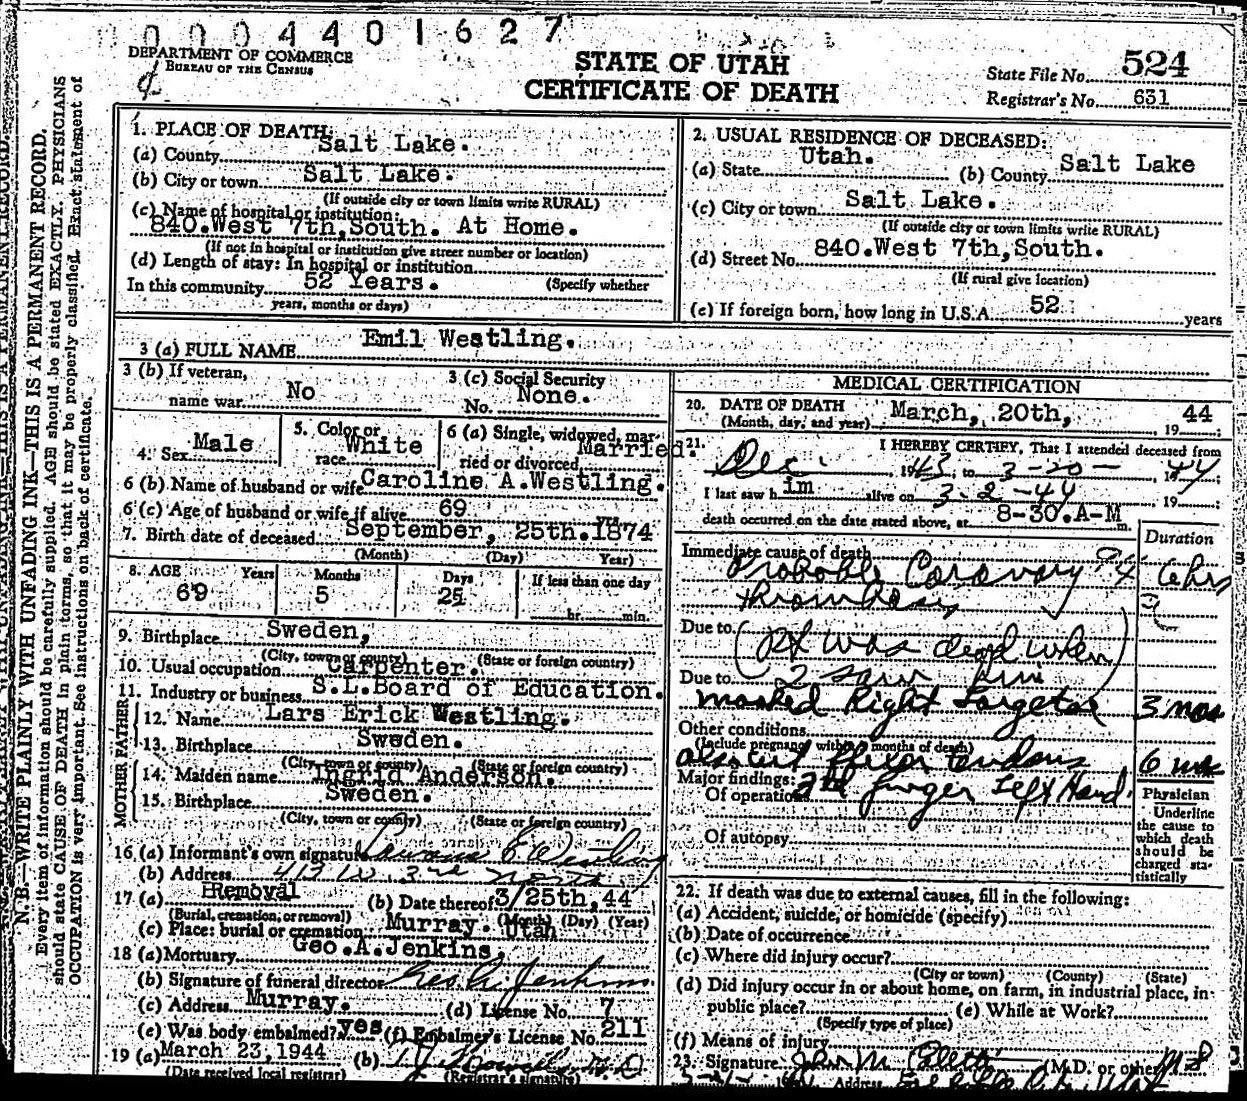 0004401627
DEPARTMENT OF COMMERCE
BUREAU OF THE CENSUS
STATE OF UTAH
CERTIFICATE OF DEATH
State File No. 524
Registrar's No. 631
N.B.—WRITE PLAINLY WITH UNFADING INK—THIS IS A PERMANENT RECORD.
Every item of information should be carefully supplied. AGE should be stated EXACTLY. PHYSICIANS
should state CAUSE OF DEATH in plain terms, so that it may be properly classified. Exact statement of
OCCUPATION is very important. See instructions on back of certificate.
1. PLACE OF DEATH:
(a) County Salt Lake.
(b) City or town Salt Lake.
(If outside city or town limits write RURAL)
(c) Name of hospital or institution:
840.West 7th,South. At Home.
(If not in hospital or institution give street number or location)
(d) Length of stay: In hospital or institution
In this community 52 Years. (Specify whether
years, months or days)
2. USUAL RESIDENCE OF DECEASED:
(a) State Utah. (b) County Salt Lake
(c) City or town Salt Lake.
(If outside city or town limits write RURAL)
(d) Street No. 840.West 7th,South.
(If rural give location)
(e) If foreign born, how long in U.S.A. 52 years
3 (a) FULL NAME Emil Westling.
3 (b) If veteran,
name war No
3 (c) Social Security
No. None.
4. Sex Male
5. Color or
race White
6 (a) Single, widowed, mar-
ried or divorced Married.
6 (b) Name of husband or wife Caroline A.Westling.
6 (c) Age of husband or wife if alive 69 yrs.
7. Birth date of deceased September, 25th.1874
(Month) (Day) Year)
8. AGE Years Months Days If less than one day
69 5 25 hr. min.
9. Birthplace Sweden,
(City, town or county) (State or foreign country)
10. Usual occupation Carpenter.
11. Industry or business S.L.Board of Education.
FATHER
12. Name Lars Erick Westling.
13. Birthplace Sweden.
(City, town or county) (State or foreign country)
MOTHER
14. Maiden name Ingrid Anderson.
15. Birthplace Sweden.
(City, town or county) (State or foreign country)
16 (a) Informant's own signature E Westling
(b) Address 413 W. 3rd North
17 (a) Removal (b) Date thereof 3/25th,44
(Burial, cremation, or removal) (Month) (Day) (Year)
(c) Place: burial or cremation Murray. Utah
18 (a) Mortuary Geo.A.Jenkins,
(b) Signature of funeral director Geo. A. Jenkins.
(c) Address Murray. (d) License No. 7
(e) Was body embalmed? yes (f) Embalmer's License No. 211
19 (a) March 23,1944 (b) M.D.
(Date received local registrar) (Registrar's signature)
MEDICAL CERTIFICATION
20. DATE OF DEATH March, 20th, 19 44
(Month, day, and year)
21. I HEREBY CERTIFY, That I attended deceased from
Dec. 1943, to 3-20- 1944;
I last saw h im alive on 3-2-44 19
death occurred on the date stated above, at 8-30.A-M m.
Duration
Immediate cause of death
Probable Coronary 94 6 hrs
thrombosis
Due to (Pt was dead when
Due to I saw him)
marked Right 3 mos
Other conditions
(Include pregnancy within 3 months of death)
also cut flexor tendons 6 mos
Major findings:
Of operations 2th finger Left Hand.
Of autopsy
Physician
Underline
the cause to
which death
should be
charged sta-
tistically
22. If death was due to external causes, fill in the following:
(a) Accident, suicide, or homicide (specify)
(b) Date of occurrence
(c) Where did injury occur?
(City or town) (County) (State)
(d) Did injury occur in or about home, on farm, in industrial place, in
public place? (e) While at Work?
(Specify type of place)
(f) Means of injury
23. Signature John M. (M.D. or other)
Address